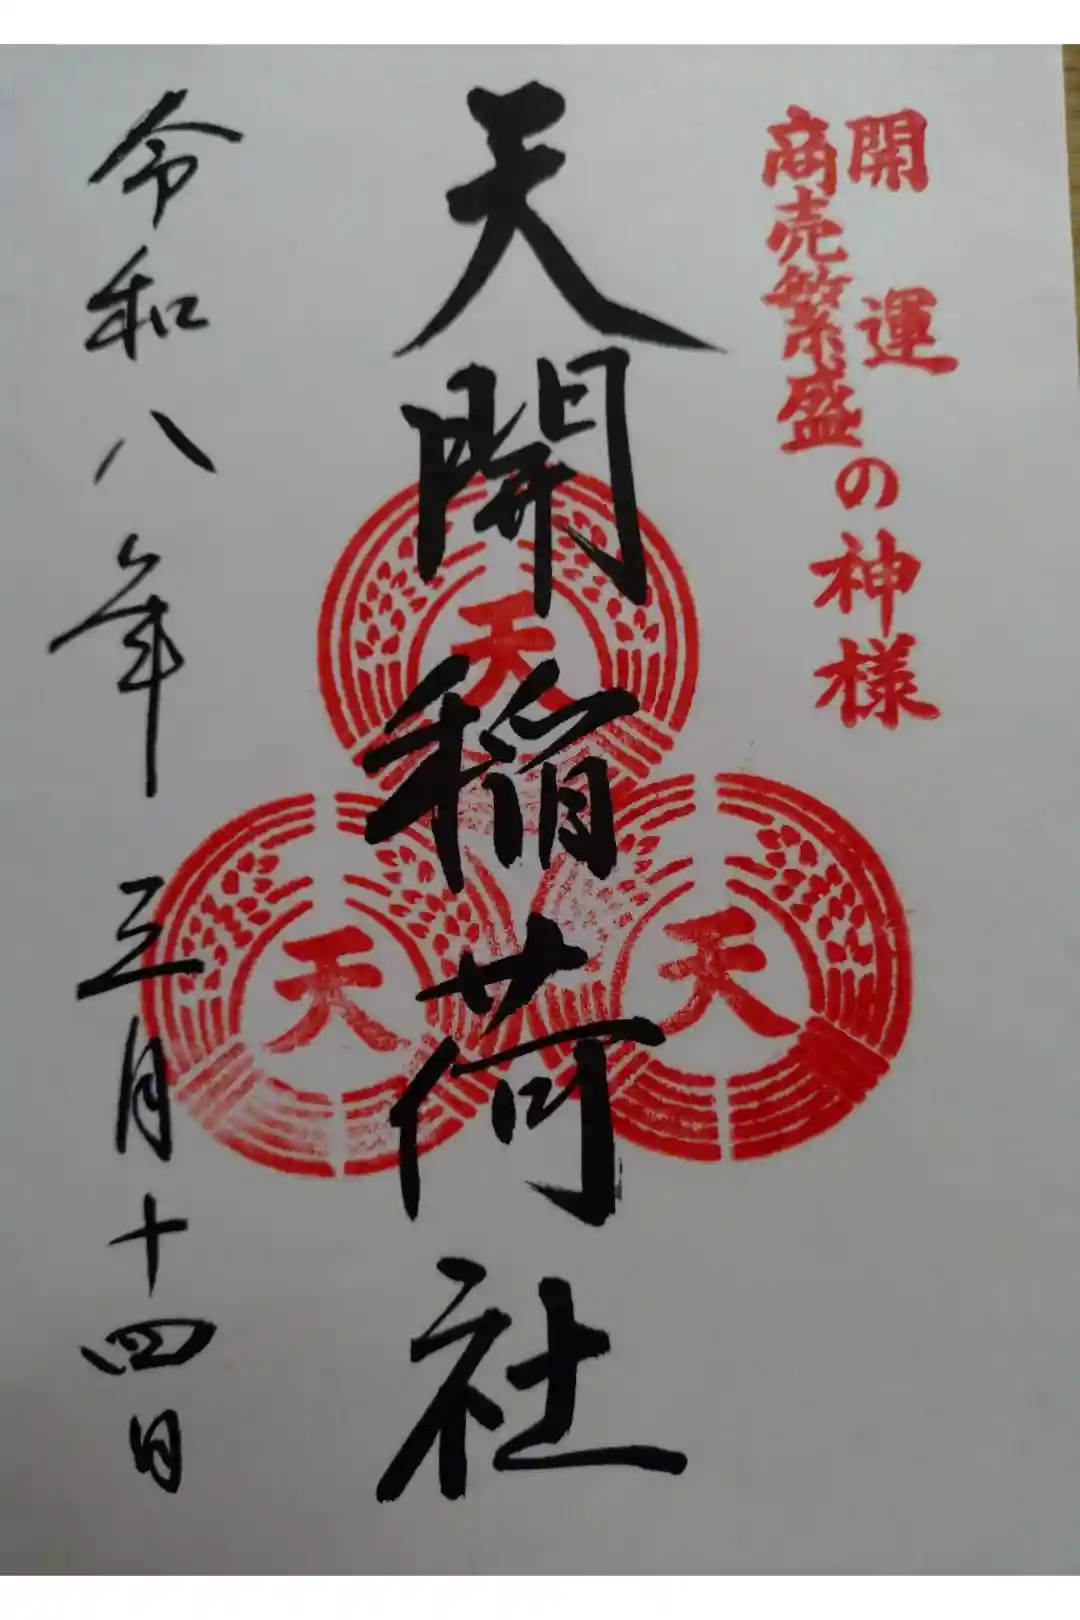 開運
商売繁盛
の神様
天開稲荷社
天
天
天
令和八年三月十四日